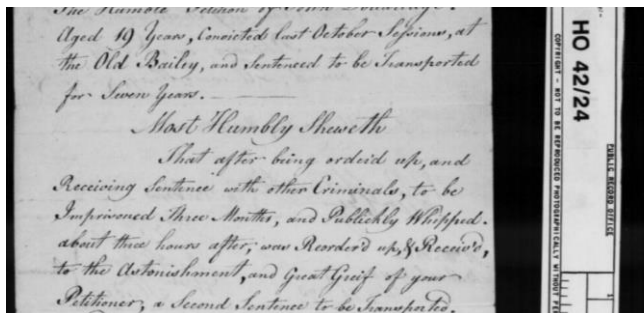 The Humble Petition of John
Aged 19 Years, Convicted last October Sessions, at
the Old Bailey, and Sentenced to be Transported
for Seven Years.
Most Humbly Sheweth
That after being orderd up, and
Receiving Sentence with other Criminals, to be
Imprisoned Three Months, and Publickly Whipped.
about three hours after, was Reorder'd up, & Receiv'd,
to the Astonishment, and Great Greif of your
Petitioner, a Second Sentence to be Transported.
HO 42/24
PUBLIC RECORD OFFICE
COPYRIGHT - NOT TO BE REPRODUCED PHOTOGRAPHICALLY WITHOUT PE